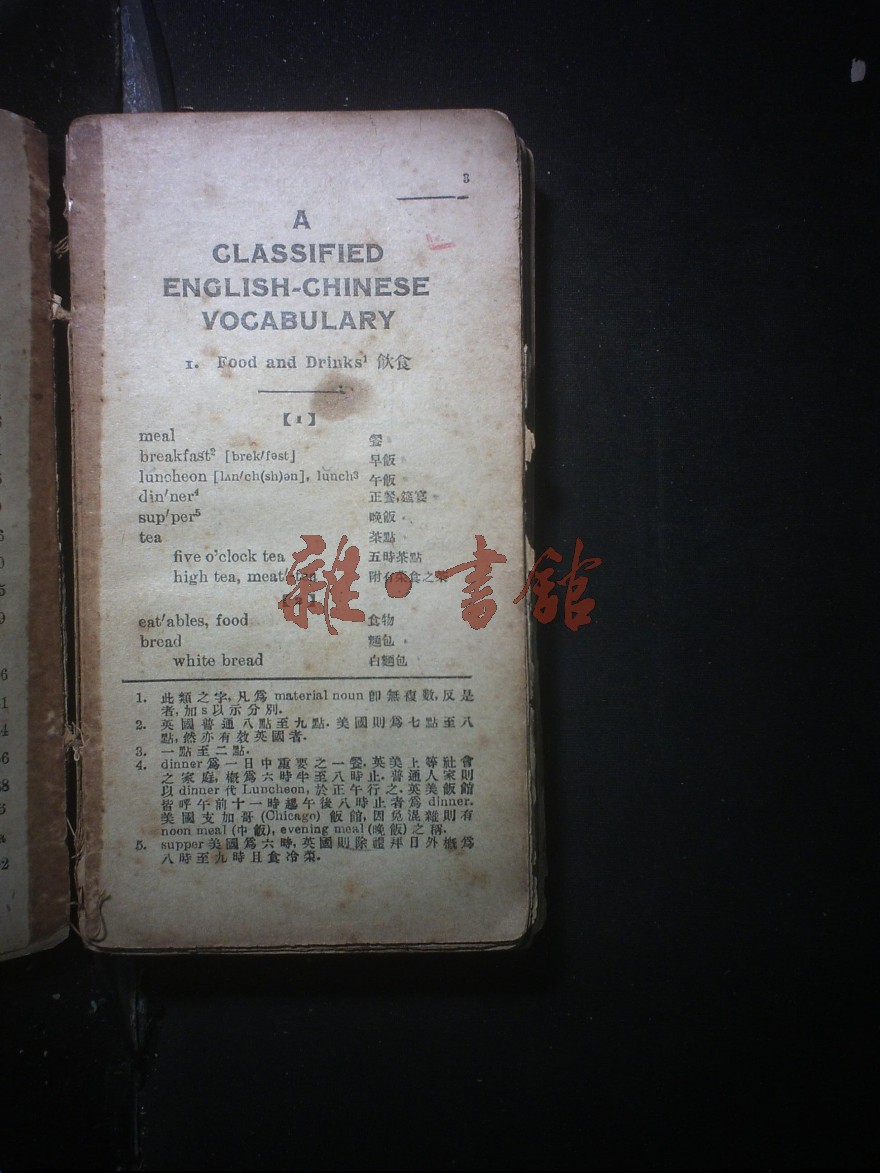 3
A
CLASSIFIED
ENGLISH-CHINESE
VOCABULARY
1. Food and Drinks¹ 飲食
【1】
meal 餐
breakfast² [brek′fəst] 早飯
luncheon [lʌn′ch(sh)ən], lunch³ 午飯
din′ner⁴ 正餐,筵宴
sup′per⁵ 晚飯
tea 茶點
five o'clock tea 五時茶點
high tea, meat′-tea 附有菜食之茶
【2】
eat′ables, food 食物
bread 麵包
white bread 白麵包
雜·書館
1. 此類之字,凡爲 material noun 卽無複數,反是
者,加 s 以示分別.
2. 英國普通八點至九點. 美國則爲七點至八
點,然亦有效英國者.
3. 一點至二點.
4. dinner 爲一日中重要之一餐. 英美上等社會
之家庭,概爲六時半至八時止. 普通人家則
以 dinner 代 Luncheon, 於正午行之. 英美飯館
皆呼午前十一時起午後八時止者爲 dinner.
美國支加哥 (Chicago) 飯館,因免混雜則有
noon meal (中飯), evening meal (晚飯) 之稱.
5. supper 美國爲六時,英國則除禮拜日外概爲
八時至九時且食冷菜.